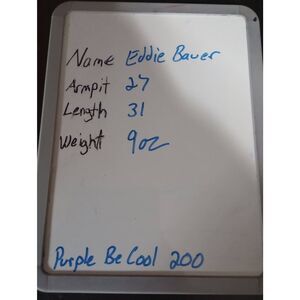 Name Eddie Bauer
Armpit 27
Length 31
Weight 9oz
Purple Be Cool 200